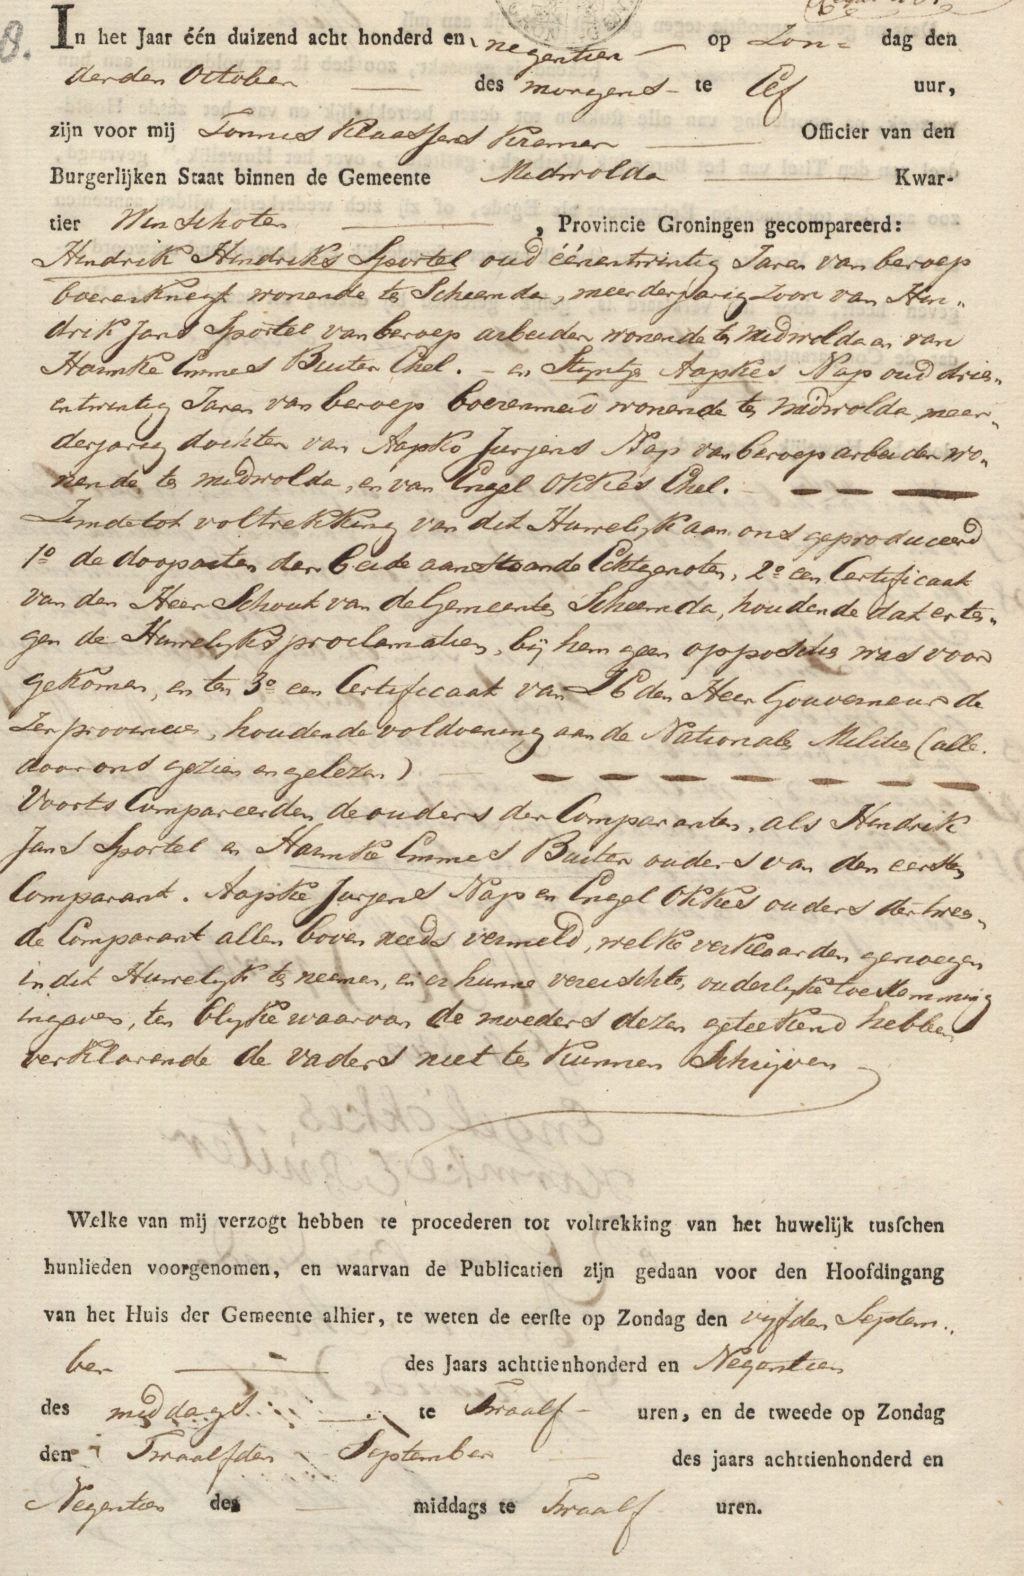 8.
In het Jaar één duizend acht honderd en negentien op Zon- dag den
derden October des morgens te Elf uur,
zijn voor mij Tonnes Klaassens Kremer Officier van den
Burgerlijken Staat binnen de Gemeente Midwolda Kwar-
tier Winschoten , Provincie Groningen gecompareerd:
Hendrik Hendriks Sportel oud éénentwintig Jaren van beroep
boerenknegt wonende te Scheemda, meerderjarig zoon van Hen-
drik Jans Sportel van beroep arbeider wonende te midwolda en van
Harmke Emmes Buiter Ehel. - en Styntje Aapkes Nap oud drie-
entwintig Jaren van beroep boerenmeid wonende te midwolda, meer-
derjarig dochter van Aapko Jurjens Nap van beroep arbeider wo-
nende te midwolda, en van Engel Okkes Ehel.
Zynde tot voltrekking van dit Huwelijk aan ons geproduceerd
1º de doopacten der beide aanstaande Echtegenoten, 2º een Certificaat
van den Heer Schout van de Gemeente Scheemda, houdende dat er te-
gen de Huwelyks proclamatien, bij hem geen oppositie was voor
gekomen, en ten 3º een Certificaat van ZE den Heer Gouverneur de
zer provincie, houdende voldoening aan de Nationale Militie (alle
door ons gezien en gelezen)
Voorts Compareerden de ouders der Comparanten, als Hendrik
Jans Sportel en Harmke Emmes Buiter ouders van den eersten
Comparant. Aapke Jurjens Nap en Engel Okkes ouders der twee-
de Comparant allen boven reeds vermeld, welke verklaarden genoegen
in dit Huwelyk te neemen, en er hunne vereischte, ouderlyke toestemming
ingeven, ten blyke waarvan de moeders dezen geteekend hebben
verklarende de vaders niet te kunnen Schrijven
Welke van mij verzogt hebben te procederen tot voltrekking van het huwelijk tusschen
hunlieden voorgenomen, en waarvan de Publicatien zijn gedaan voor den Hoofdingang
van het Huis der Gemeente alhier, te weten de eerste op Zondag den vijfden Septem-
ber des Jaars achttienhonderd en Negentien
des middags te Twaalf uren, en de tweede op Zondag
den Twaalfden September des jaars achttienhonderd en
Negentien des middags te Twaalf uren.